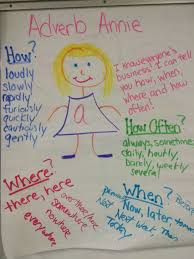 Adverb Annie
How?
loudly
slowly
rapidly
furiously
quickly
cautiously
gently
I know everyone's
business! I can tell
you how, when,
where and how
often!
a
How Often?
always, sometimes
daily, hourly,
barely, weekly
several
Where?
there, here
over there/here
somewhere
nowhere
everywhere
When?
Before
Now, later
tomorrow
Next Week Then
Today